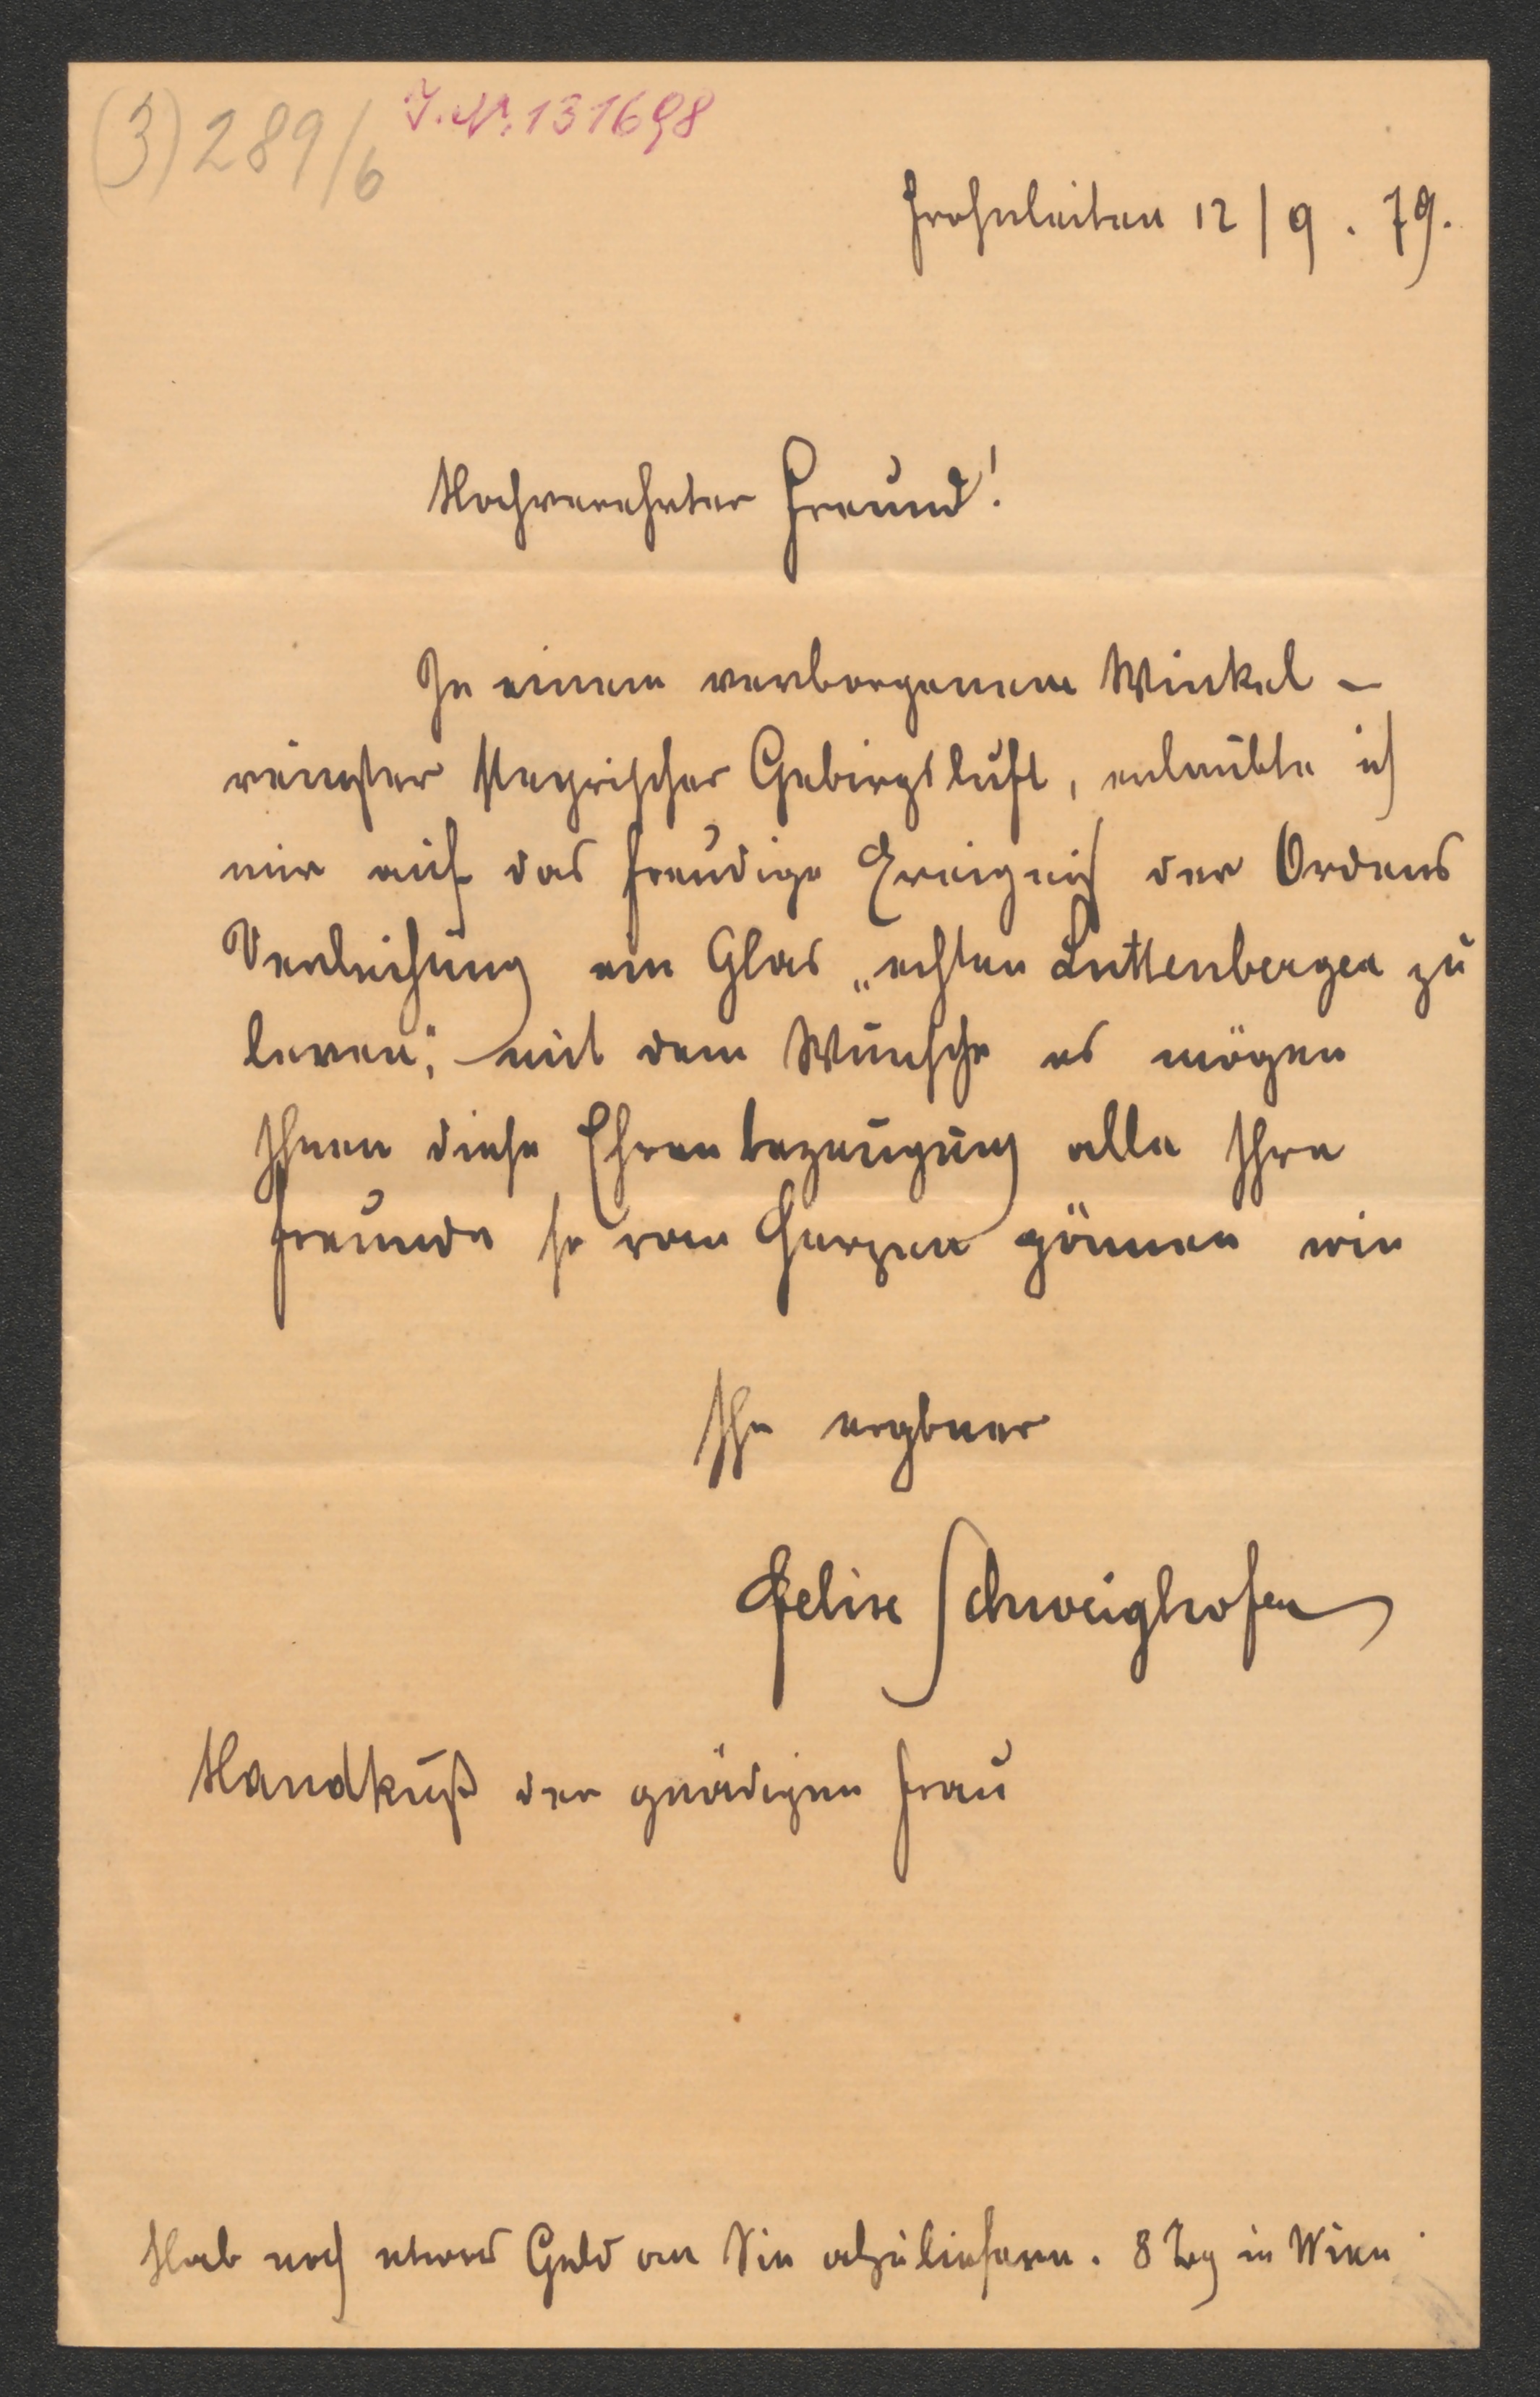 (3) 289/6 J.N. 131698
Frohnleiten 12/9. 79.
Hochverehrter Freund!
In einem verborgenen Winkel –
reinster steyrischer Gebirgsluft, erlaubte ich
mir auf das freudige Ereigniß der Ordens
Verleihung ein Glas „echten Luttenberger zu
leeren“; mit dem Wunsche es mögen
Ihnen diese Ehrenbezeugung alle Ihre
Freunde so vom Herzen gönnen wie
Ihr ergbner
Felix Schweighofer
Handkuß der gnädigen Frau
Hab noch etwas Geld an Sie abzuliefern. 8 Tag in Wien